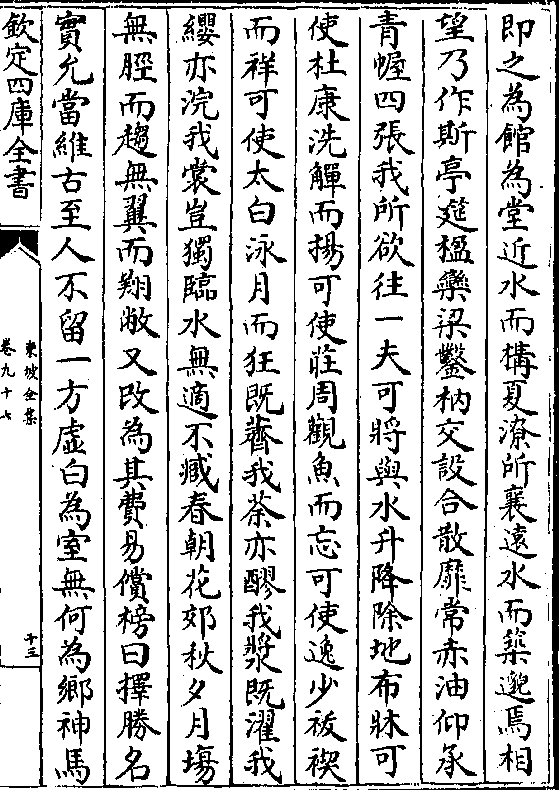 即之為館為堂近水而構夏潦所襄遠水而築邈焉相
望乃作斯亭筵楹欒梁鑿枘交設合散靡常赤油仰承
青幄四張我所欲往一夫可將與水升降除地布牀可
使杜康洗觶而揚可使莊周觀魚而忘可使逸少祓禊
而祥可使太白泳月而狂既薺我荼亦醪我漿既濯我
纓亦浣我裳豈獨臨水無適不臧春朝花郊秋夕月塲
無脛而趨無翼而翔敝又改為其費易償榜曰擇勝名
實允當維古至人不留一方虛白為室無何為鄉神馬
欽定四庫全書
東坡全集
卷九十七
十三